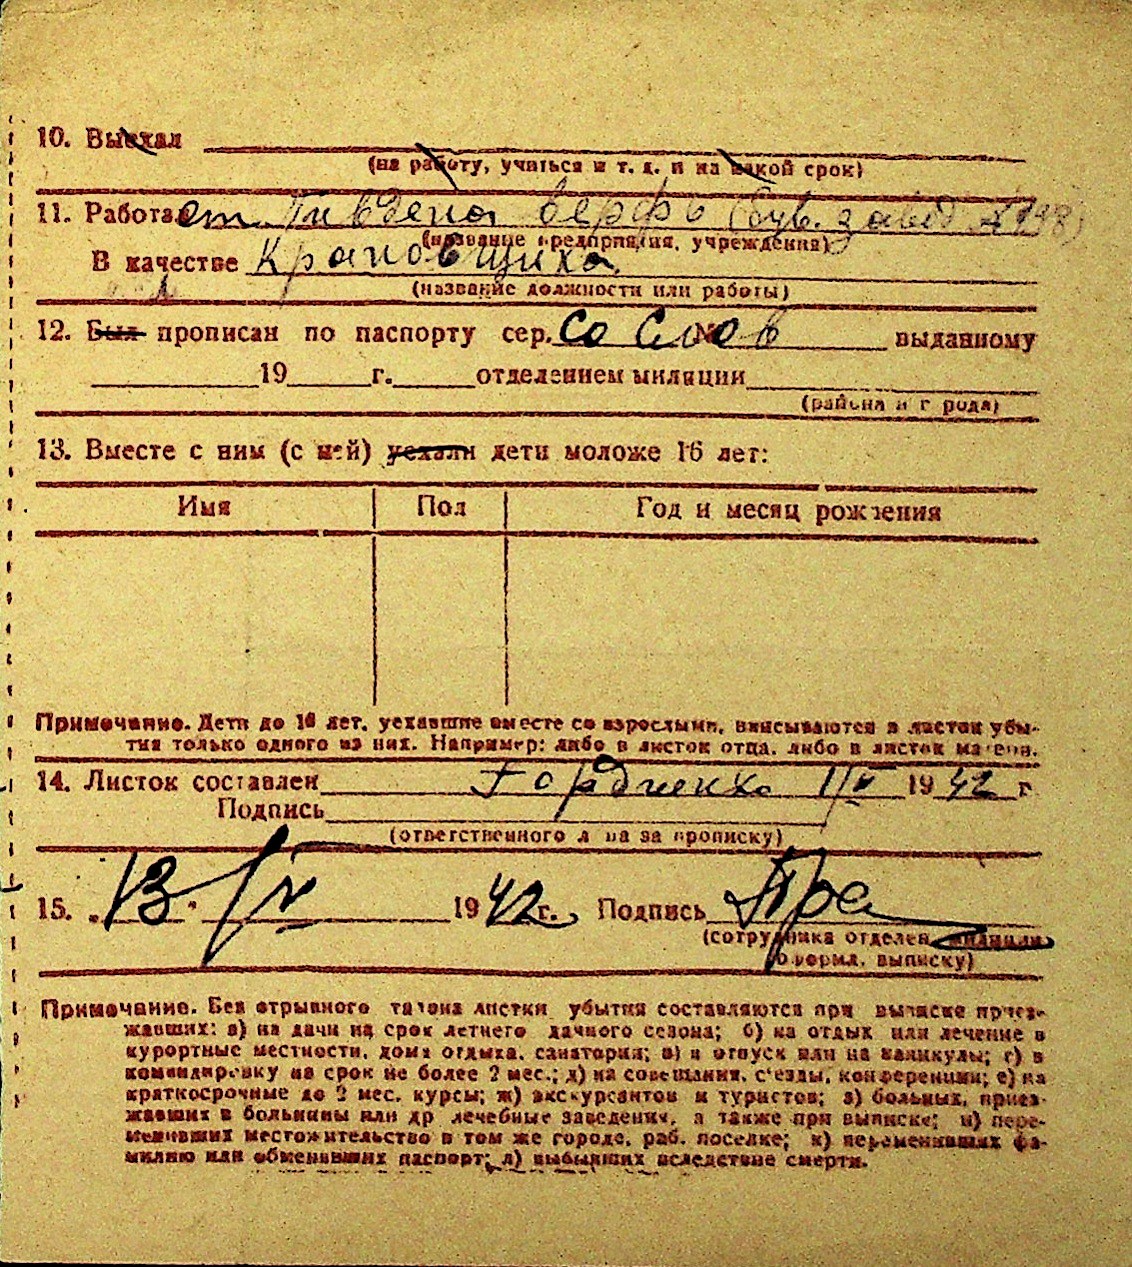 10. Выехал
(на работу, учиться и т. д. и на какой срок)
11. Работа ет Пивдена верфь (був. завод №198)
(название предприятия, учреждения)
В качестве Крановщиха
(название должности или работы)
12. Был прописан по паспорту сер. со слов № выданному
19 г. отделением милиции
(района и города)
13. Вместе с ним (с ней) уехали дети моложе 16 лет:
Имя Пол Год и месяц рождения
Примечание. Дети до 16 лет, уехавшие вместе со взрослыми, вписываются в листок убы-
тия только одного из них. Например: либо в листок отца, либо в листок матери.
14. Листок составлен Гордиенко 1/V 1942 г
Подпись
(ответственного лица за прописку)
15. „13“ /V 1942 г. Подпись
(сотрудника отделен. милиции
оформл. выписку)
Примечание. Без отрывного талона листки убытия составляются при выписке приез-
жавших: а) на дачи на срок летнего дачного сезона; б) на отдых или лечение в
курортные местности, дома отдыха, санатория; в) в отпуск или на каникулы; г) в
командировку на срок не более 2 мес.; д) на совещания, съезды, конференции; е) на
краткосрочные до 2 мес. курсы; ж) экскурсантов и туристов; з) больных, приез-
жавших в больницы или др лечебные заведения, а также при выписке; и) пере-
менивших местожительство в том же городе, раб. поселке; к) переменивших фа-
милию или обменявших паспорт; л) выбывших вследствие смерти.